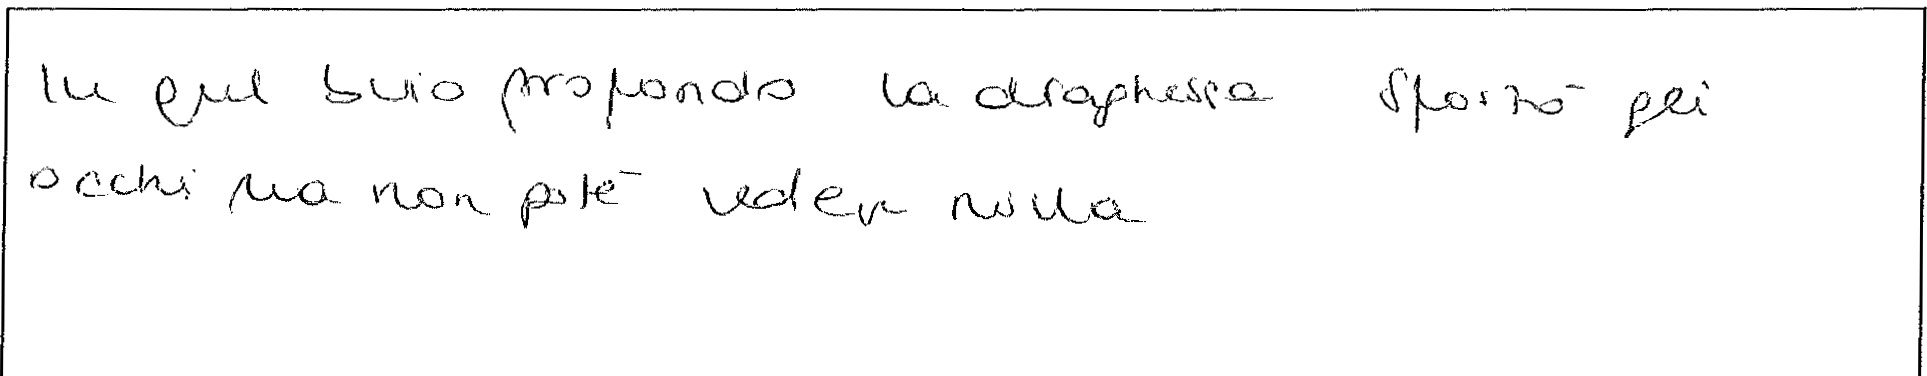 In quel buio profondo la draghessa sforzò gli
occhi ma non poté veder nulla